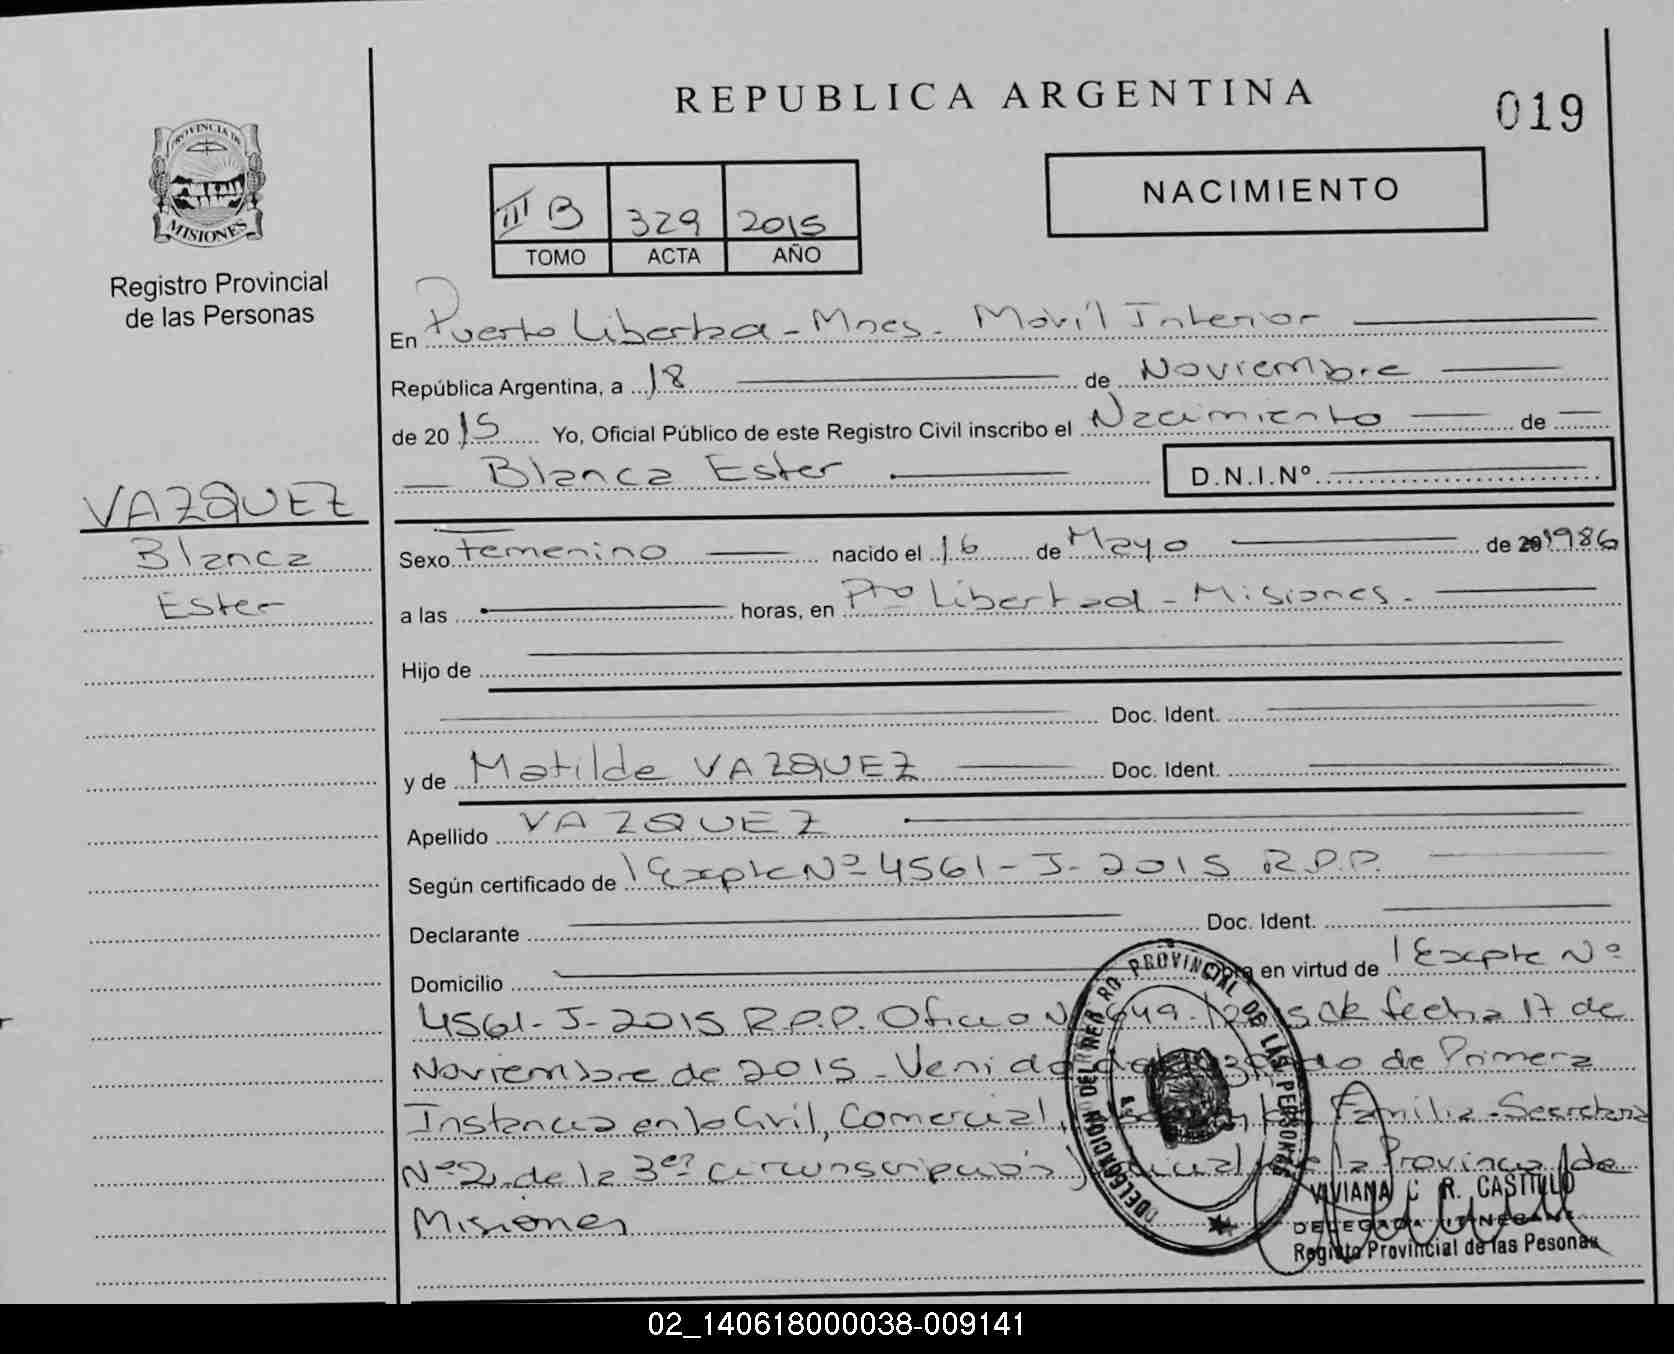 REPUBLICA ARGENTINA
019
PROVINCIA DE
MISIONES
Registro Provincial
de las Personas
III B 329 2015
TOMO ACTA AÑO
NACIMIENTO
En Puerto Libertad - Mnes. Movil Interior
República Argentina, a 18 de Noviembre
de 2015 Yo, Oficial Público de este Registro Civil inscribo el Nacimiento de
Blanca Ester D.N.I.Nº
VAZQUEZ
Blanca
Ester
Sexo Femenino nacido el 16 de Mayo de 1986
a las horas, en Pto Libertad - Misiones.
Hijo de
Doc. Ident.
y de Matilde VAZQUEZ Doc. Ident.
Apellido VAZQUEZ
Según certificado de Expte Nº 4561-J-2015 R.P.P.
Declarante Doc. Ident.
Domicilio en virtud de Expte Nº
4561-J-2015 R.P.P. Oficio de fecha 17 de
Noviembre de 2015 - Venido de Primera
Instancia en lo Civil, Comercial, Familia - Secretaria
Nº 2, de la 3er circunscripción Judicial de la Provincia de
Misiones
DELEGACION PROVINCIAL DE LAS PERSONAS
VIVIANA R. CASTILLO
DELEGADA ITINERANTE
Registro Provincial de las Pesonas
02_140618000038-009141